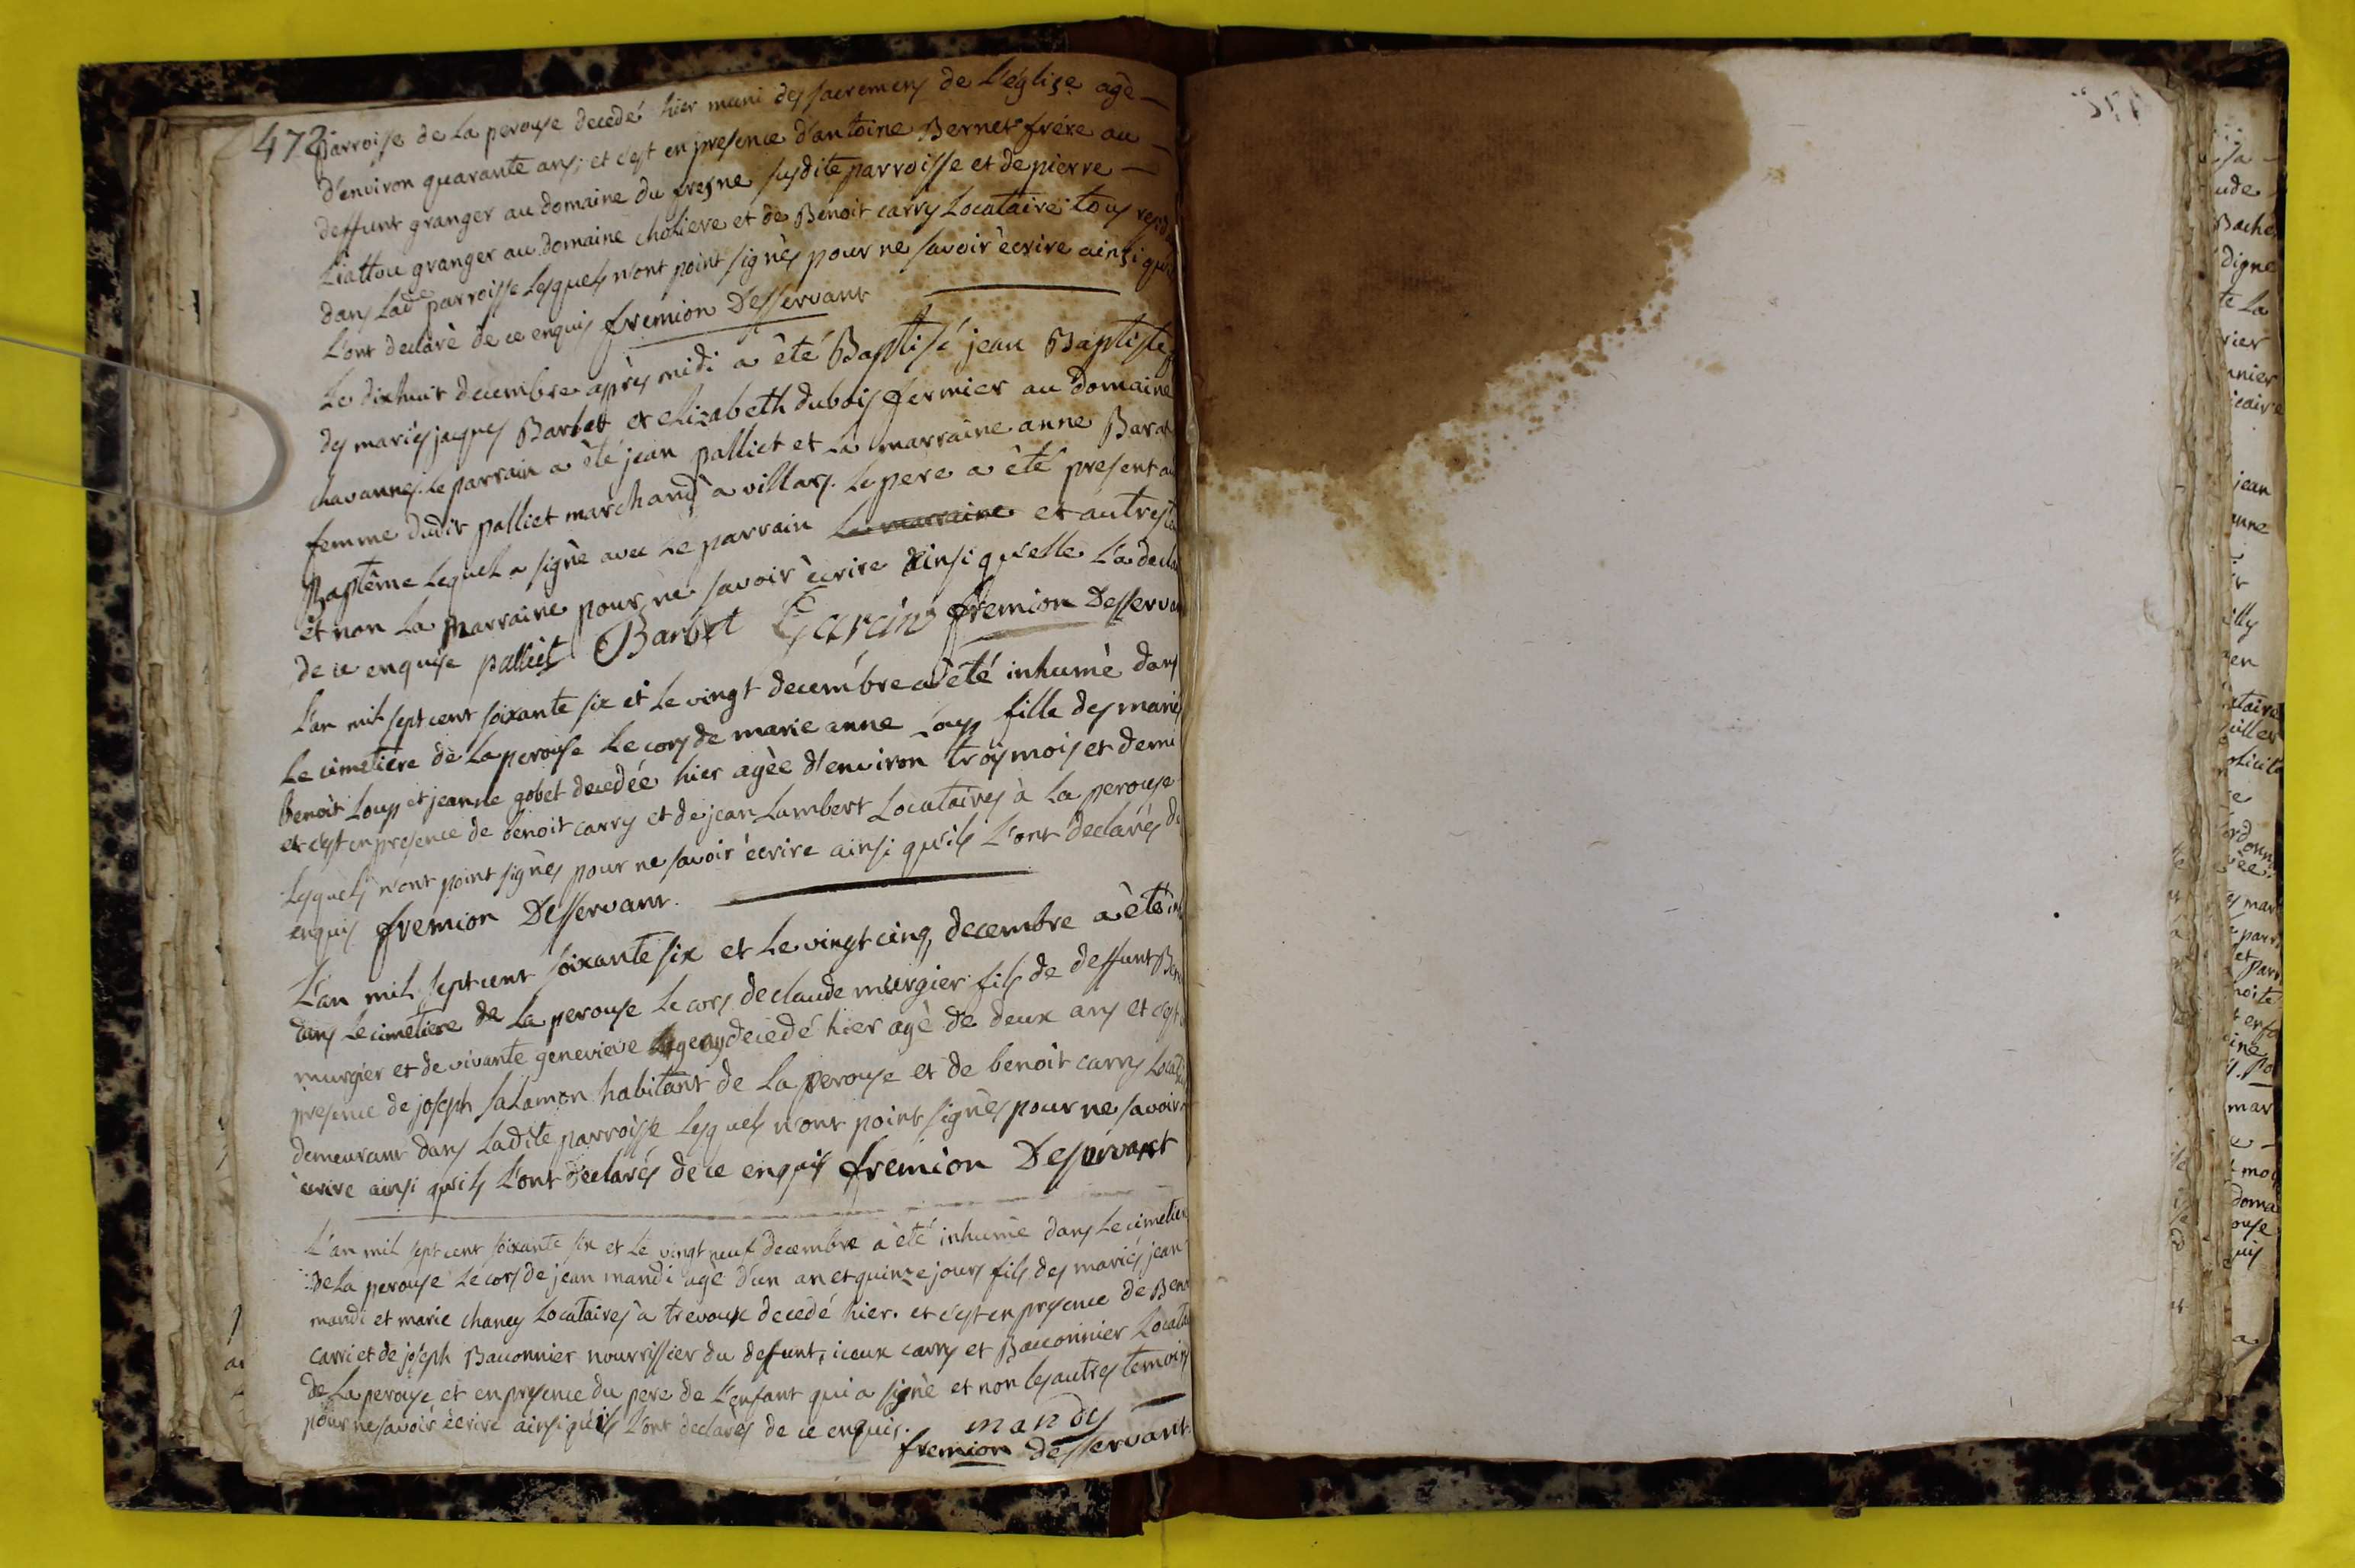 472
parroisse de La perouse decedé hier muni des sacremens de L'église agè
d'environ quarante ans; et c'est en presence d'antoine Bernet frère au
deffunt granger au domaine du fresne susdite parroisse et de pierre
Liattou granger au domaine choliere et de Benoit carry Locataire tous
dans Lad.e parroisse Lesquels n'ont point signés pour ne savoir ècrire ainsi qu'
L'ont declarè de ce enquis fremion Desservant
Le dixhuit decembre après midi a été Baptisé jean Baptiste
des mariés jaques Barbet et elizabeth dubois fermier au domaine
chavannes. Le parrain a été jean palliet et La marraine anne
femme dudit palliet marchand a villars. Le pere a été present au
Baptême Lequel a signè avec Le parrain La marraine et autres
et non La marraine pour ne savoir ècrire ainsi qu'elle L'a
de ce enquise palliet Barbet Garin fremion
L'an mil sept cent soixante six et Le vingt decembre a été inhumè dans
Le cimetiere de La perouse Le cors de marie anne Loup fille des mariés
benoit Loup et jeanne gobet decedée hier agèe d'environ trois mois et demi
et c'est en presence de benoit carry et de jean Lambert Locataires à La perouse
Lesquels n'ont point signès pour ne savoir ècrire ainsi qu'ils L'ont declarés de
enquis fremion Desservant.
L'an mil sept cent soixante six et Le vingt cinq decembre a été
dans Le cimetiere de La perouse Le cors de claude murgier fils de deffunt
murgier et de vivante genevieve decedé hier agè de deux ans et c'est
presence de joseph salamon habitant de La perouse et de benoit carry
demeurant dans Ladite parroisse Lesquels n'ont point signès pour ne savoir
ècrire ainsi qu'ils L'ont declarés de ce enquis fremion Desservant
L'an mil sept cent soixante six et Le vingt neuf decembre a été inhumè dans Le cimetiere
de La perouse Le cors de jean mandi agè d'un an et quinze jours fils des mariés jean
mandi et marie chaney Locataires a trevoux decedé hier. et c'est en presence de
carri et de joseph Bauconnier nourrissier du defunt, iceux carry et Bauconnier
de La perouse, et en presence du pere de L'enfant qui a signè et non les autres temoins
pour ne savoir ècrire ainsi qu'ils L'ont declarés de ce enquis. mandy
fremion desservant